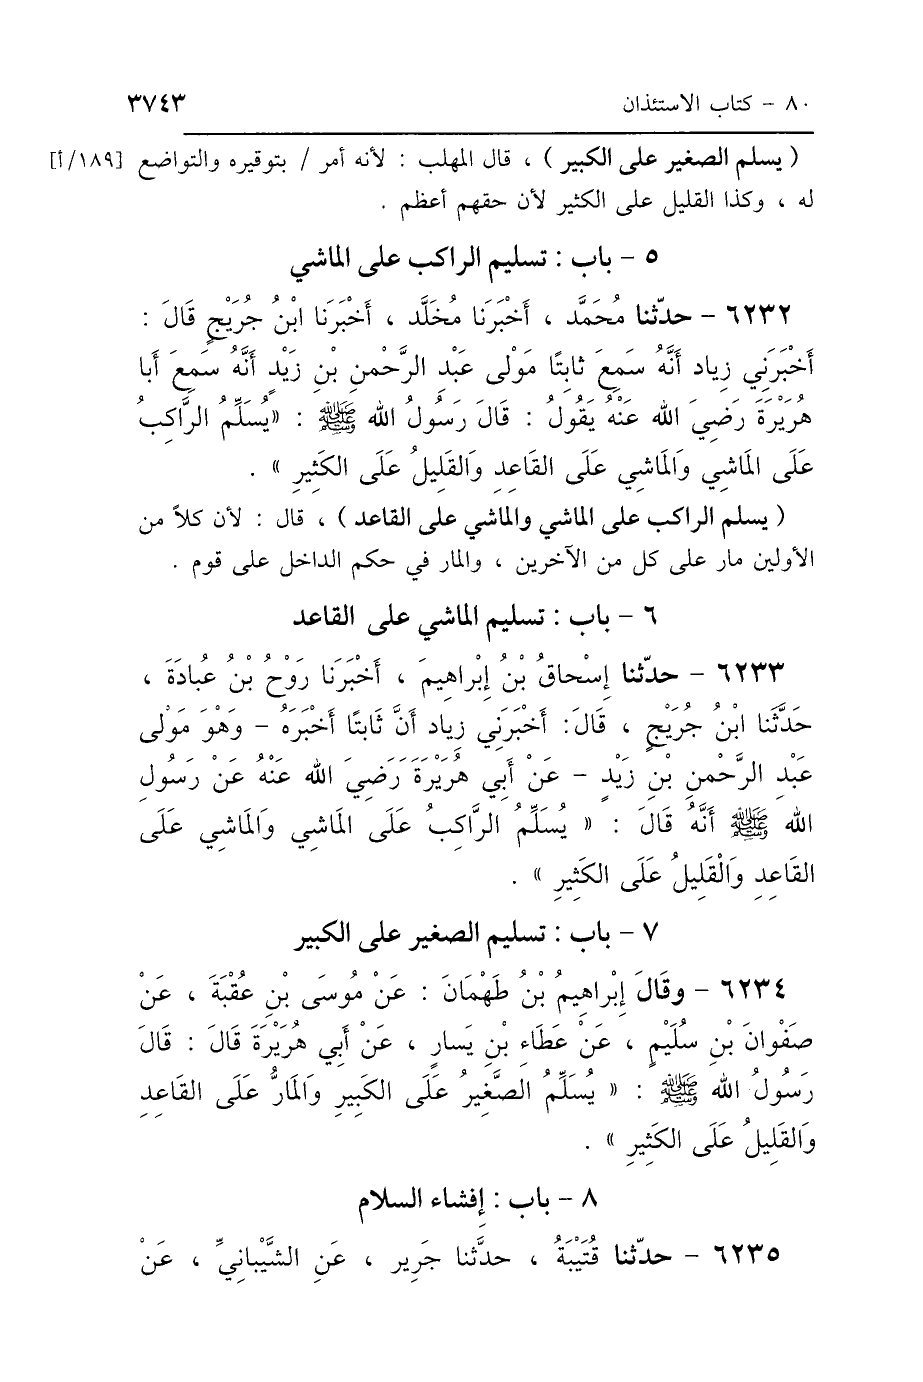 ٨٠ – كتاب الاستئذان ٣٧٤٣
( يسلم الصغير على الكبير ) ، قال المهلب : لأنه أمر / بتوقيره والتواضع [١٨٩/أ]
له ، وكذا القليل على الكثير لأن حقهم أعظم .
٥ – باب : تسليم الراكب على الماشي
٦٢٣٢ – حدّثنا مُحَمَّد ، أَخْبَرَنَا مُخَلَّد ، أَخْبَرَنَا ابْنُ جُرَيْجٍ قَالَ :
أَخْبَرَنِي زياد أَنَّهُ سَمِعَ ثابتًا مَوْلى عَبْدِ الرَّحْمنِ بْنِ زَيْدٍ أَنَّهُ سَمِعَ أَبا
هُرَيْرَةَ رَضِيَ الله عَنْهُ يَقُولُ : قَالَ رَسُولُ الله ﷺ : «يُسَلِّمُ الرَّاكِبُ
عَلَى الْمَاشِي وَالْمَاشِي عَلَى القَاعِدِ وَالقَلِيلُ عَلَى الكَثِيرِ » .
( يسلم الراكب على الماشي والماشي على القاعد ) ، قال : لأن كلاً من
الأولين مار على كل من الآخرين ، والمار في حكم الداخل على قوم .
٦ – باب : تسليم الماشي على القاعد
٦٢٣٣ – حدّثنا إِسْحاقُ بْنُ إِبْراهِيمَ ، أَخْبَرَنَا رَوْحُ بْنُ عُبادَةَ ،
حَدَّثَنَا ابْنُ جُرَيْجٍ ، قَالَ: أَخْبَرَنِي زياد أَنَّ ثَابتًا أَخْبَرَهُ – وَهْوَ مَوْلى
عَبْدِ الرَّحْمنِ بْنِ زَيْدٍ – عَنْ أَبِي هُرَيْرَةَ رَضِيَ الله عَنْهُ عَنْ رَسُولِ
الله ﷺ أَنَّهُ قَالَ : « يُسَلِّمُ الرَّاكِبُ عَلَى الْمَاشِي وَالْمَاشِي عَلَى
القَاعِدِ وَالْقَلِيلُ عَلَى الكَثِيرِ » .
٧ – باب : تسليم الصغير على الكبير
٦٢٣٤ – وقَالَ إِبْراهِيمُ بْنُ طَهْمَانَ : عَنْ مُوسَى بْنِ عُقْبَةَ ، عَنْ
صَفْوانَ بْنِ سُلَيْمٍ ، عَنْ عَطَاءِ بْنِ يَسارٍ ، عَنْ أَبِي هُرَيْرَةَ قَالَ : قَالَ
رَسُولُ الله ﷺ : « يُسَلِّمُ الصَّغِيرُ عَلَى الكَبِيرِ وَالْمَارُّ عَلَى القَاعِدِ
وَالقَلِيلُ عَلَى الكَثِيرِ » .
٨ – باب : إفشاء السلام
٦٢٣٥ – حدّثنا قُتَيْبَةُ ، حدَّثنا جَرِير ، عَنِ الشَّيْبانِيِّ ، عَنْ